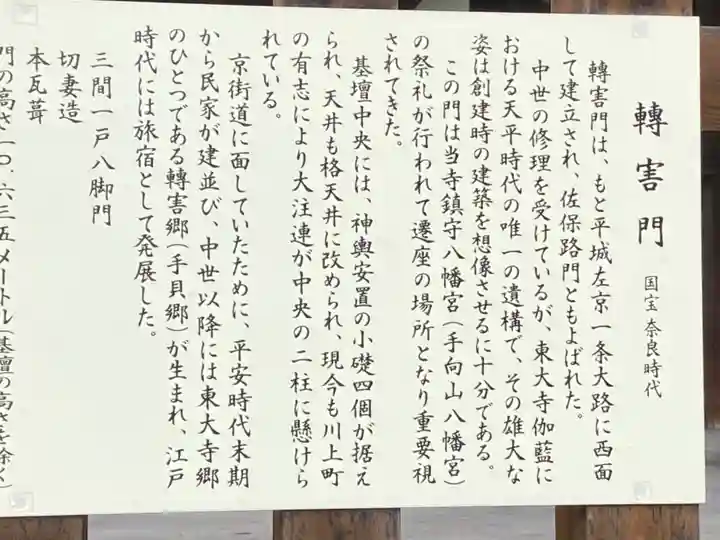 轉害門
国宝 奈良時代
轉害門は、もと平城左京一条大路に西面
して建立され、佐保路門ともよばれた。
中世の修理を受けているが、東大寺伽藍に
おける天平時代の唯一の遺構で、その雄大な
姿は創建時の建築を想像させるに十分である。
この門は当寺鎮守八幡宮(手向山八幡宮)
の祭礼が行われて遷座の場所となり重要視
されてきた。
基壇中央には、神輿安置の小礎四個が据え
られ、天井も格天井に改められ、現今も川上町
の有志により大注連が中央の二柱に懸けら
れている。
京街道に面していたために、平安時代末期
から民家が建並び、中世以降には東大寺郷
のひとつである轉害郷(手貝郷)が生まれ、江戸
時代には旅宿として発展した。
三間一戸八脚門
切妻造
本瓦葺
門の高さ一〇.六三五メートル(基壇の高さを除く)